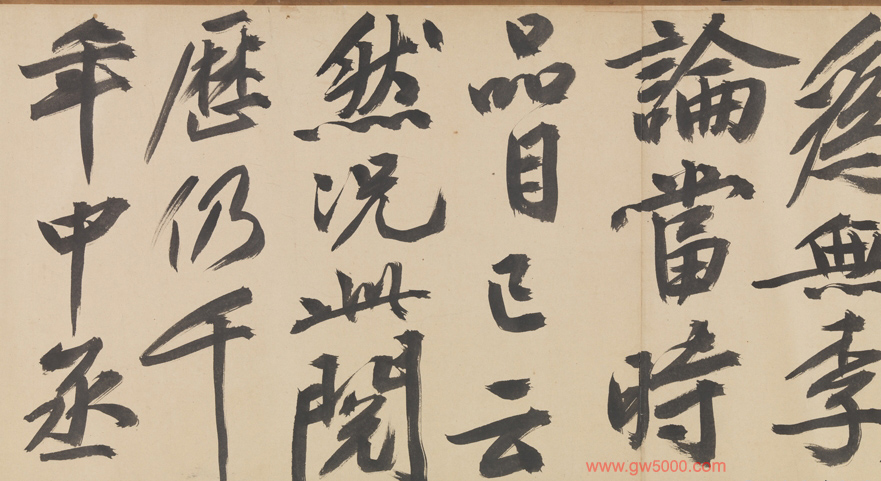 復無李
論當時
品目已云
然況此閱
歷仍千
年中丞
www.gw5000.com